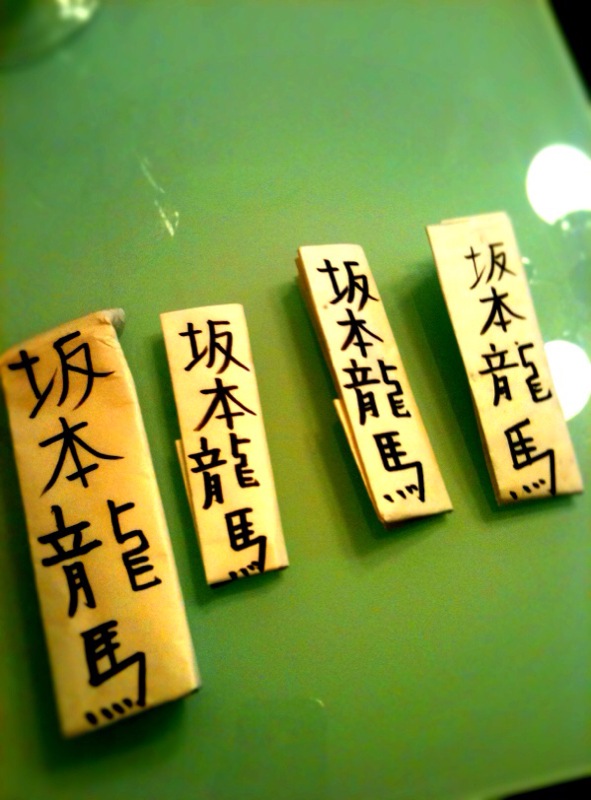 坂本龍馬
坂本龍馬
坂本龍馬
坂本龍馬